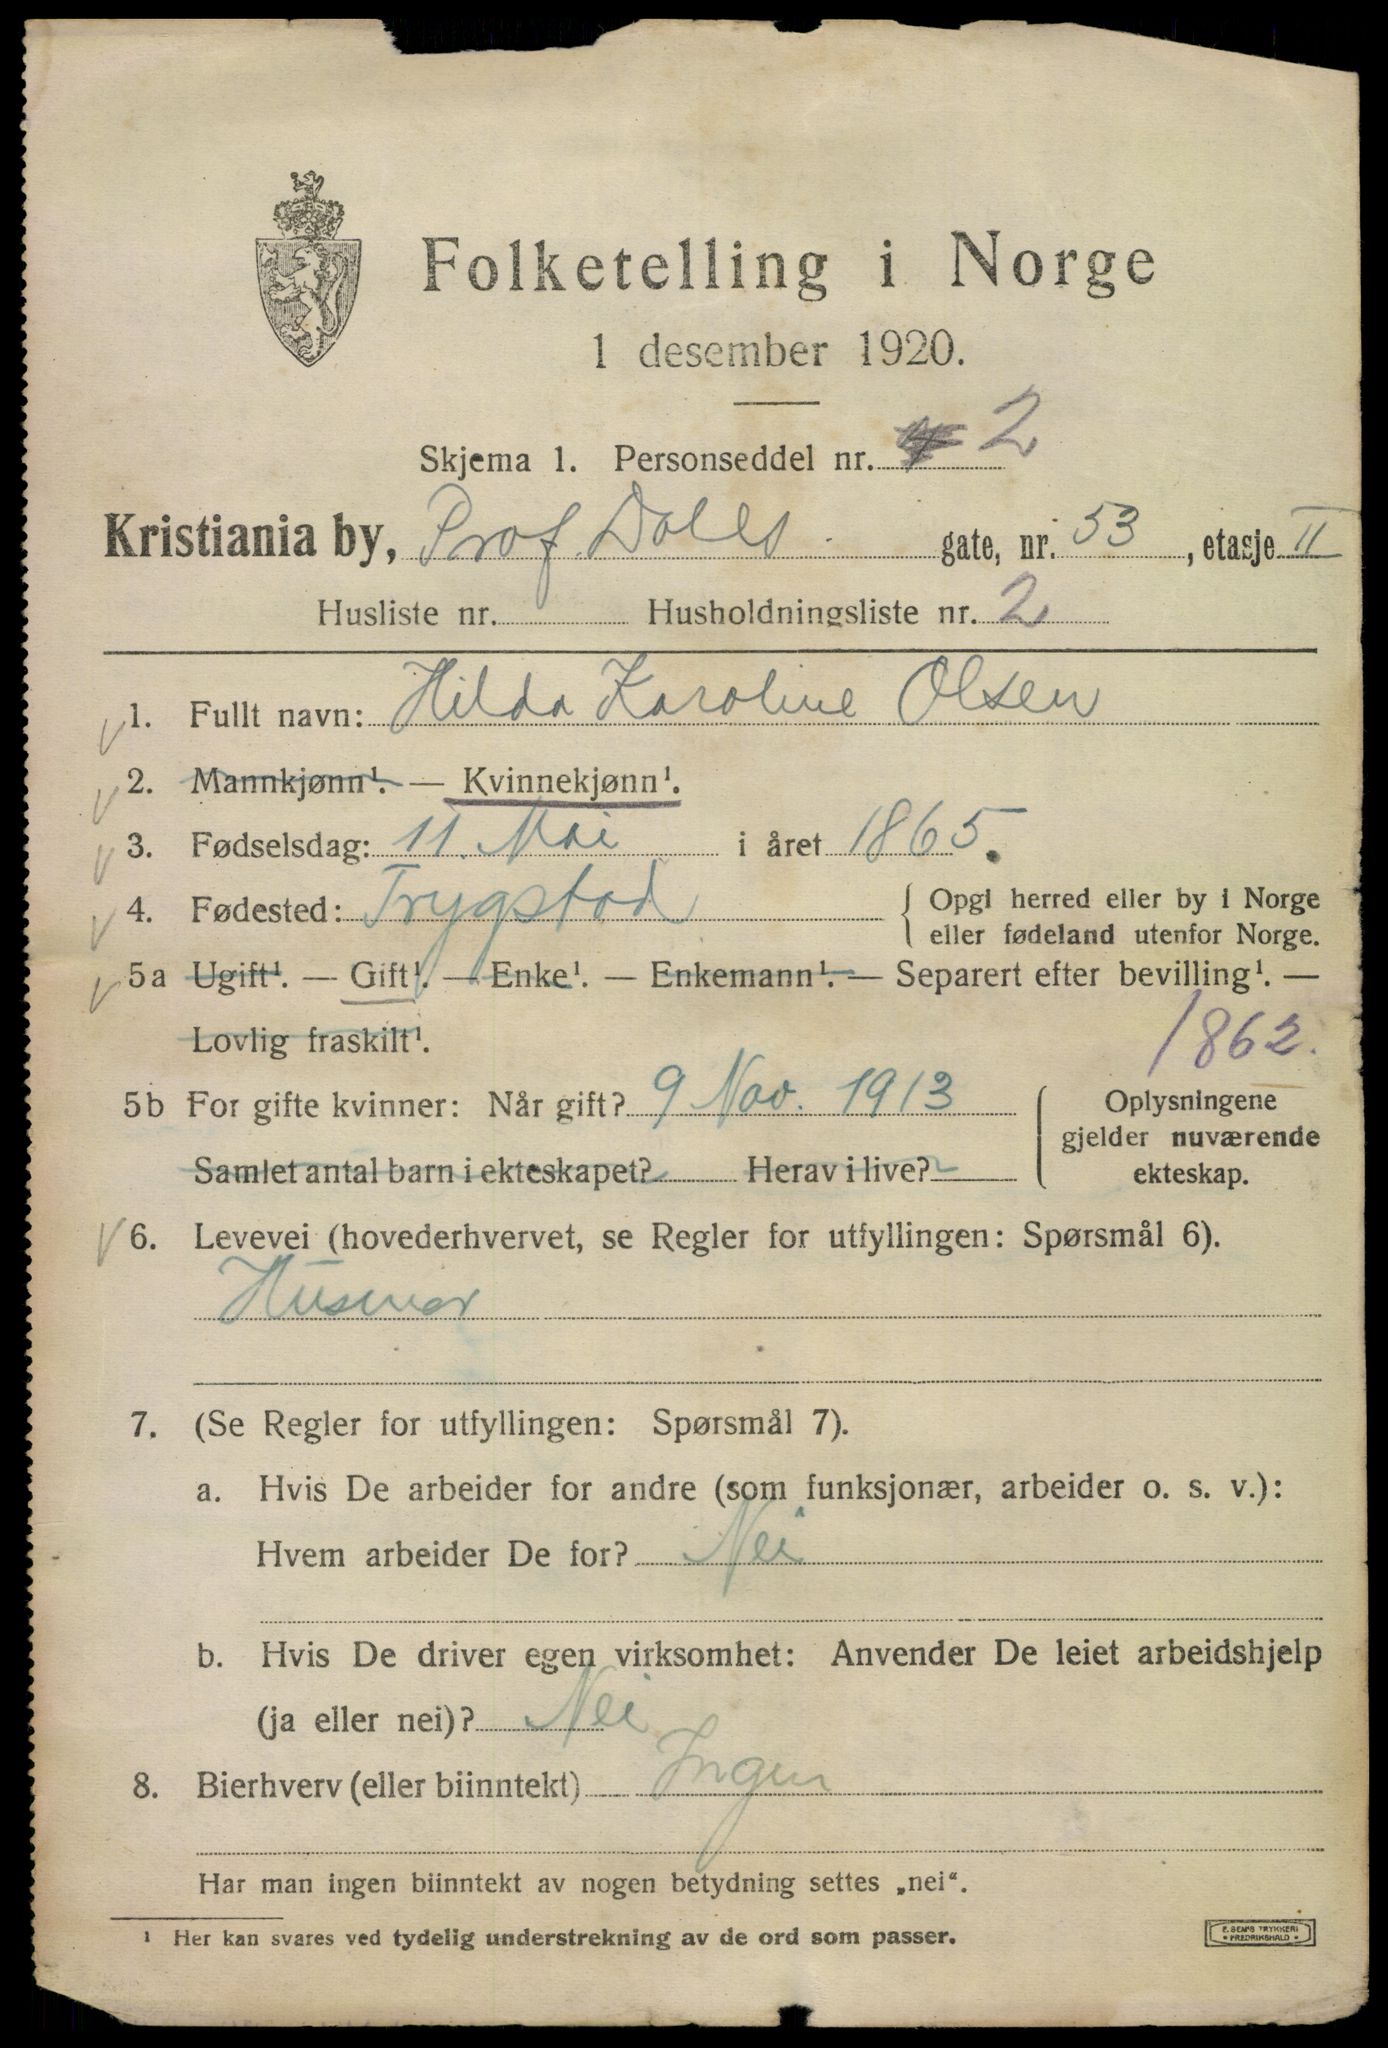 Folketelling i Norge
1 desember 1920.
Skjema 1. Personseddel nr. 2
Kristiania by, Prof. Dahls gate, nr. 53, etasje II
Husliste nr. Husholdningsliste nr. 2
1. Fullt navn: Hilda Karoline Olsen
2. Mannkjønn¹. — Kvinnekjønn¹.
3. Fødselsdag: 11. Mai i året 1865.
4. Fødested: Trygstad { Opgi herred eller by i Norge
eller fødeland utenfor Norge.
5a Ugift¹. — Gift¹. — Enke¹. — Enkemann¹. — Separert efter bevilling¹. —
Lovlig fraskilt¹. 1862.
5b For gifte kvinner: Når gift? 9 Nov. 1913 { Oplysningene
gjelder nuværende
Samlet antal barn i ekteskapet? Herav i live? ekteskap.
6. Levevei (hovederhvervet, se Regler for utfyllingen: Spørsmål 6).
Husmor
7. (Se Regler for utfyllingen: Spørsmål 7).
a. Hvis De arbeider for andre (som funksjonær, arbeider o. s. v.):
Hvem arbeider De for? Nei
b. Hvis De driver egen virksomhet: Anvender De leiet arbeidshjelp
(ja eller nei)? Nei
8. Bierhverv (eller biinntekt) Ingen
Har man ingen biinntekt av nogen betydning settes „nei“.
¹ Her kan svares ved tydelig understrekning av de ord som passer.
E. SEM'S TRYKKERI
• FREDRIKSHALD •